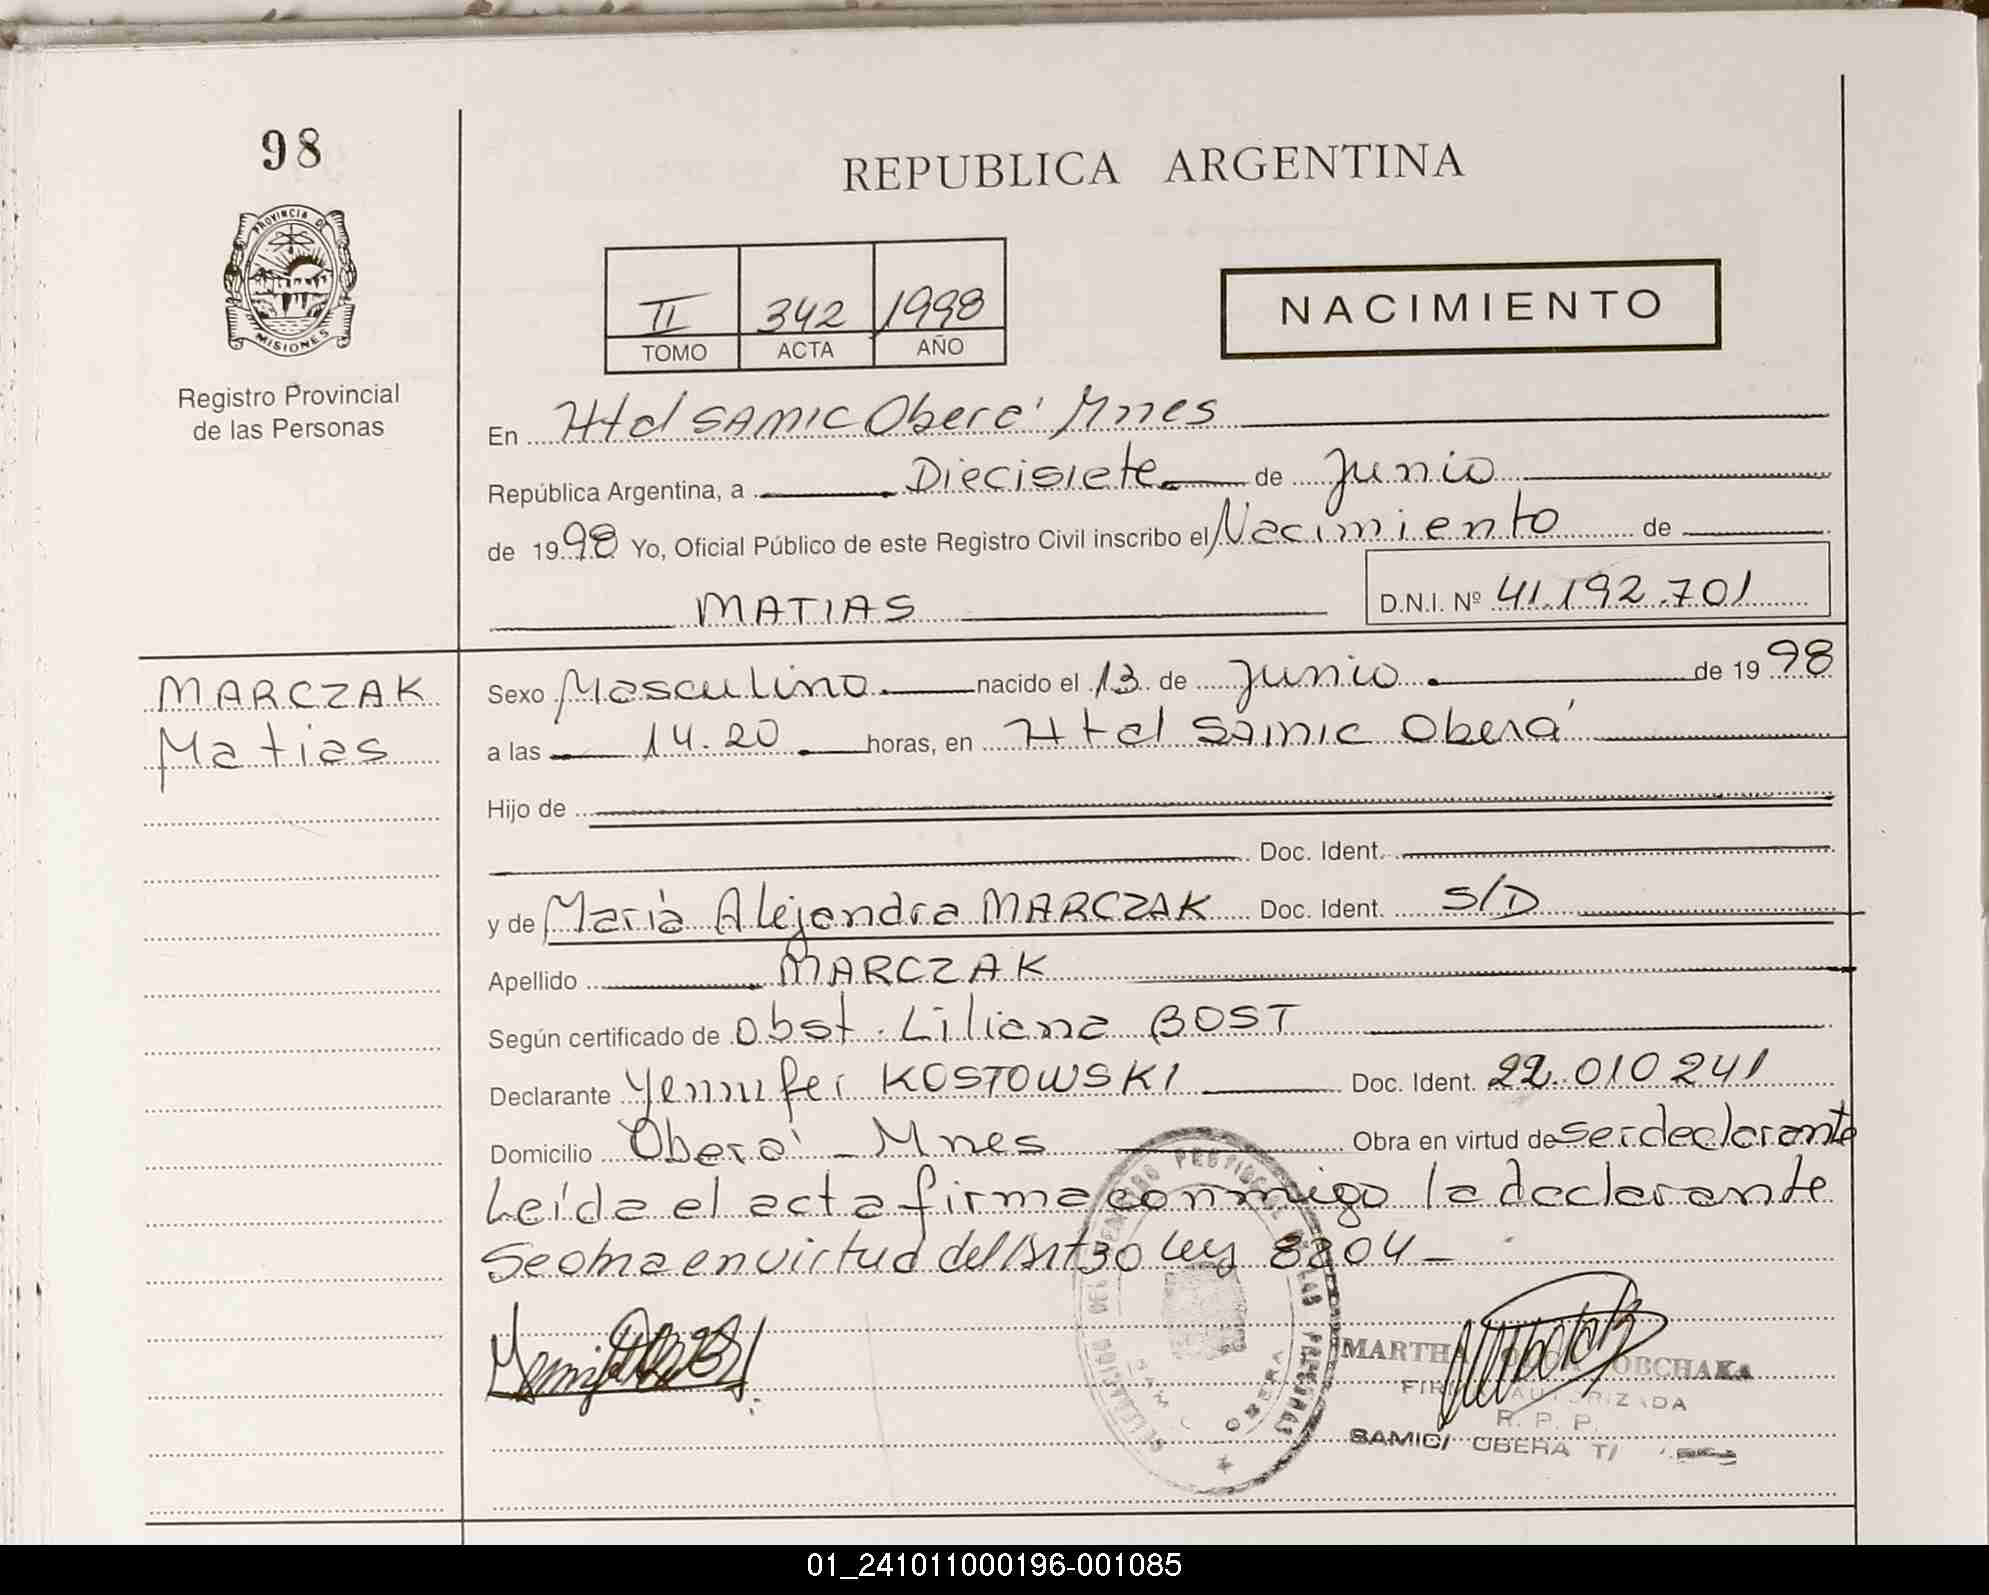 98
REPUBLICA ARGENTINA
PROVINCIA DE
MISIONES
II 342 1998
TOMO ACTA AÑO
NACIMIENTO
Registro Provincial
de las Personas
En Htal SAMIC Oberá Mnes
República Argentina, a Diecisiete de Junio
de 1998 Yo, Oficial Público de este Registro Civil inscribo el Nacimiento de
MATIAS D.N.I. Nº 41.192.701
MARCZAK
Matias
Sexo Masculino nacido el 13 de Junio de 1998
a las 14.20 horas, en Htal SAMIC Oberá
Hijo de
Doc. Ident.
y de Maria Alejandra MARCZAK Doc. Ident. S/D
Apellido MARCZAK
Según certificado de Obst. Liliana BOST
Declarante Yennifer KOSTOWSKI Doc. Ident. 22.010241
Domicilio Oberá - Mnes Obra en virtud de ser declarante
Leída el acta firma conmigo la declarante
Se obra en virtud del Art 30 ley 8204 -
OBERA
MARTHA
FIRMA AUTORIZADA
R. P. P.
SAMIC/ OBERA T/
01_241011000196-001085